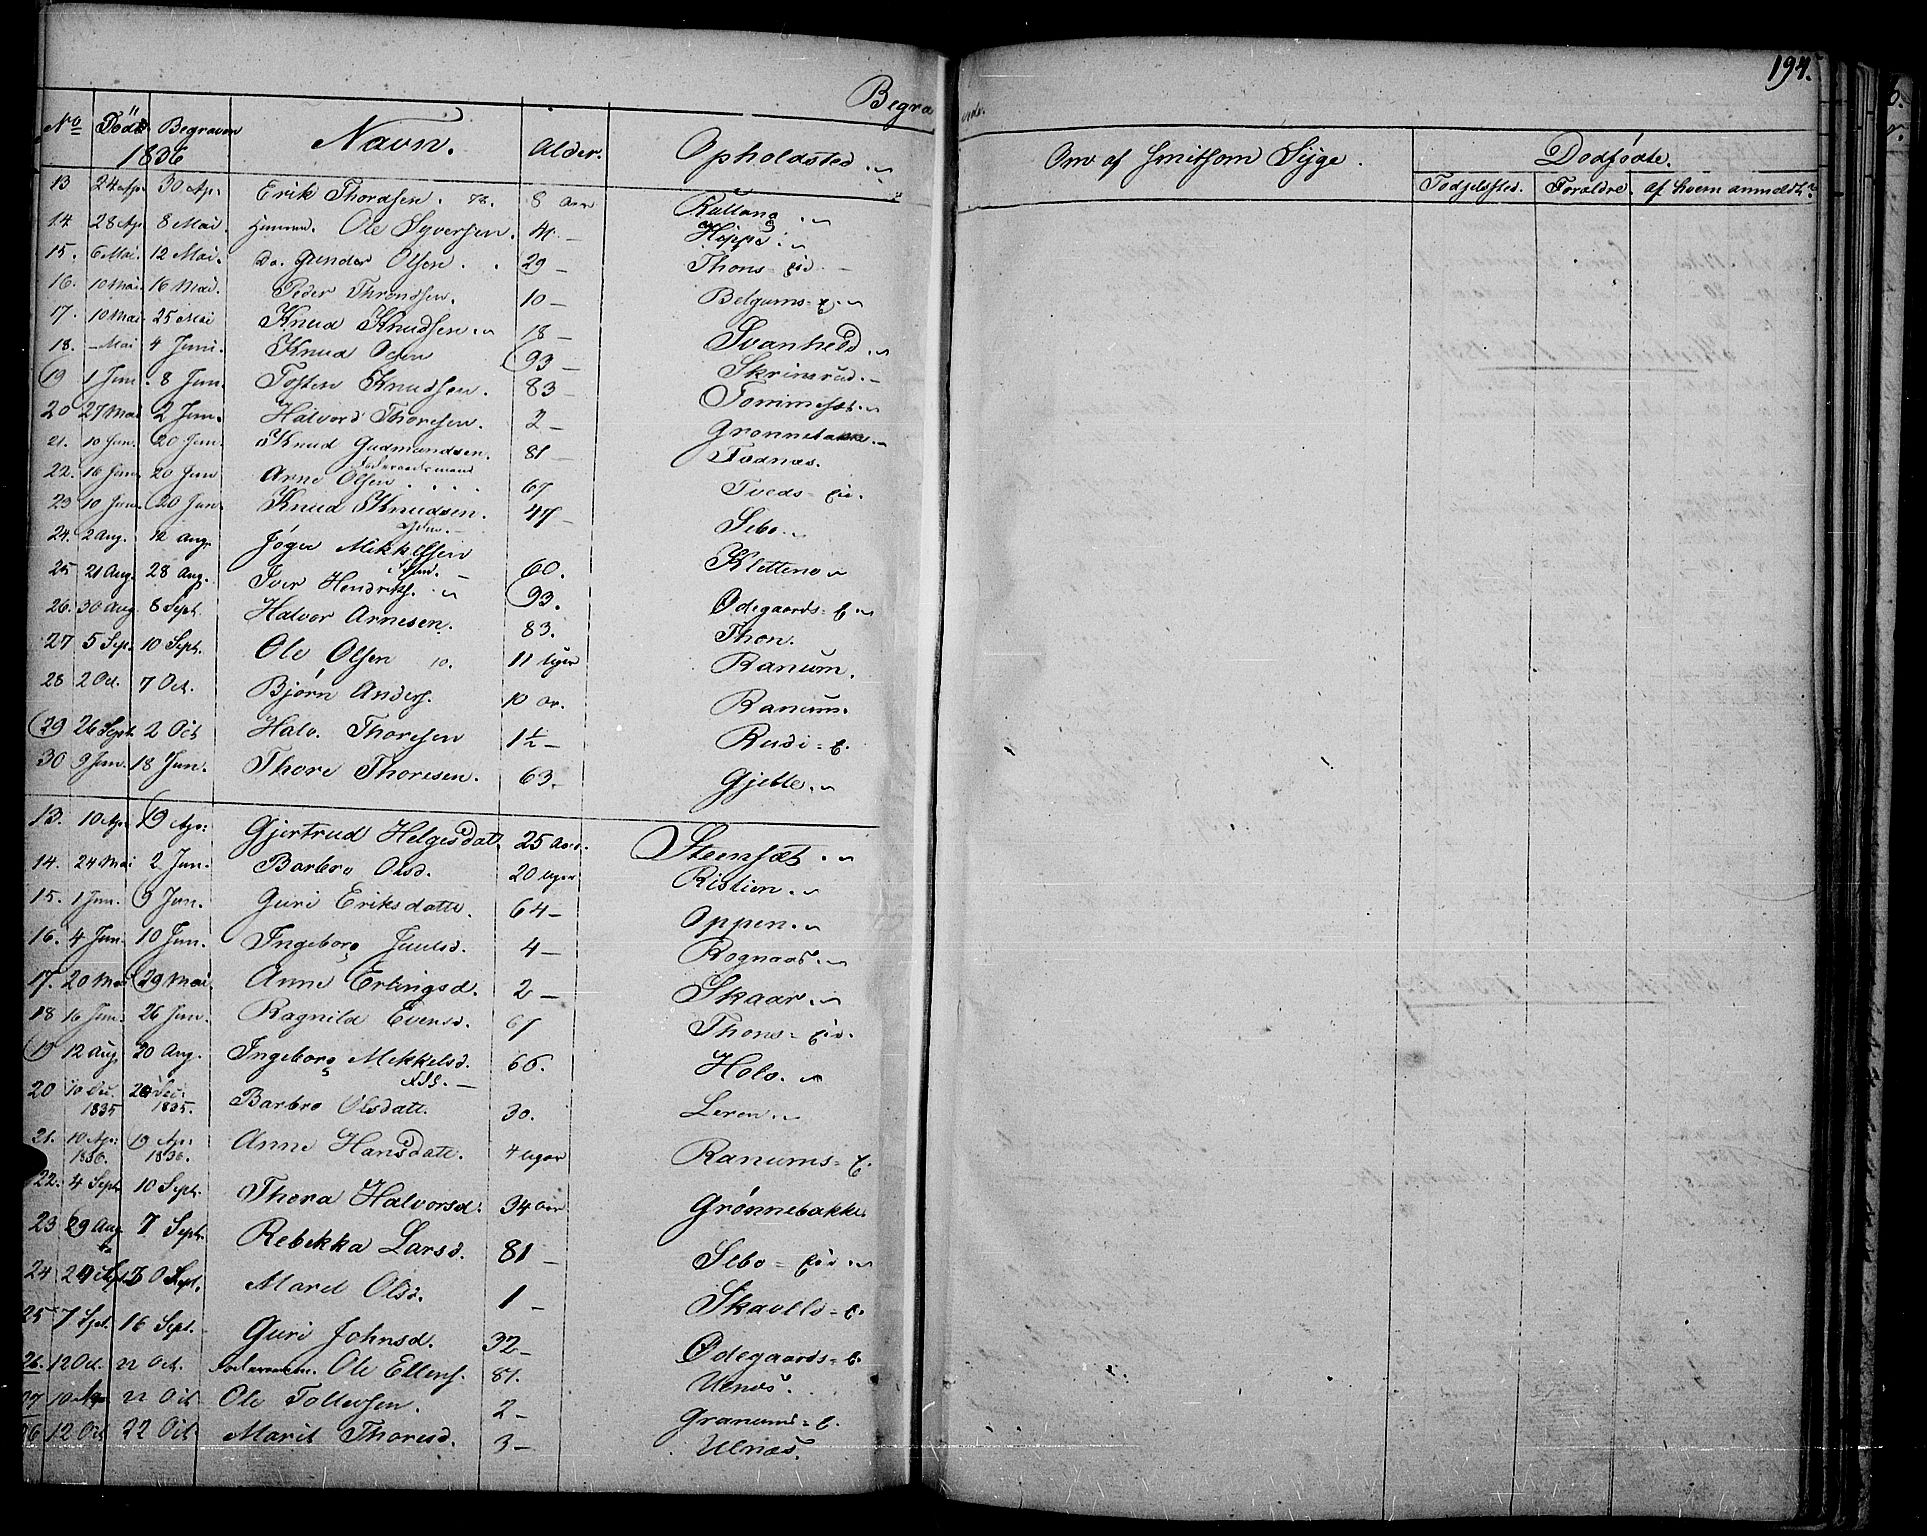 194.
Begravede.
No Döde Begraven Navn. Alder. Opholdsted.
1836
Anv af smitsom Syge. Dødfødte.
Fødselssted. Forældre. af hvem anmeldt?
13 24 Ap. 30 Ap. Erik Thordsen. 8 Aar Kullang
14. 28 Ap. 8 Mai. Ole Syversen. 4 — Høppe
15. 6 Mai. 12 Mai. Do. Gunder Olsen. 29 — Thons = eie.
16. 10 Mai 16 Mai. Peder Throndsen. 10 — Belgums = e.
17. 10 Mai 25 Mai Knud Knudsen. 18 — Svanheld.
18. — Mai 4 Juni. Knud Osen 93 — Skrinsrud.
19 1 Jun. 8 Jun. Tosten Knudsen. 83 — Tommesæt.
20 27 Mai 2 Jun. Halvord Thoresen. 2 — Grønnebakke.
21. 10 Jun. 20 Jun. Knud Gudmundsen. 81 — Fodnæs.
Foderaadsmand
22. 16 Jun. 20 Jun Arne Olsen 67 Tveds = eie.
23 10 Jun. 20 Jun. Knud Knudsen. 47 — Sebo.
24. 2 Aug. 12 Aug. Jøger Mikkelsen 60. Kletteno
25 21 Aug. 28 Aug. Iver Hendriks. 93. Ødegaards = e.
26. 30 Aug 8 Sept. Halvor Arnesen. 83. Thon.
27 5 Sep. 10 Sept. Ole Olsen 11 Uger Ranum.
28 2 Oct. 7 Oct. Bjørn Anders. 10 Ar. Ranum.
29 26 Sept. 2 Oct Halv. Thoresen 1½ — Rudi = e.
30 9 Jan. 18 Jan. Thore Thoresen. 63. Gjetle.
13. 10 Ap. 19 Ap: Gjertrud Helgesdat. 25 Aar. Steensæt.
14. 24 Mai 2 Jun. Barbro Olsd. 20 Uger Ristien.
15. 1 Jun. 9 Jun. Guri Eriksdatte. 64 — Oppen.
16. 4 Jun. 10 Jun. Ingeborg Juulsd. 4 — Rognaas.
17. 20 Mai 29 Mai Anne Erlingsd. 2 — Skaar.
18 16 Jun. 26 Jun. Ragnild Evensd. 67 Thons = eie.
19 12 Aug. 20 Aug. Ingeborg Mekkelsd. 66. Holo.
Fdg. —
20 10 Dec. 1835 26 Dec. 1835. Barbro Olsdatt. 30. Leren.
21. 10 Ap: 1836. 19 Ap: 1836. Anne Hansdatt. 4 Uger Ranums = e.
22. 4 Sept. 10 Sept. Thora Halvorsd. 34 Aar Grønnebakke
23 29 Aug 7 Sept. Rebekka Larsd. 81 — Sebo = eie.
24 24 Sept. 30 Sept. Marel Olsd. 1 — Skavlls = e.
25 7 Sept. 16 Sept. Guri Johnsd. 32 — Ødegaards = e.
26. 12 Oct. 22 Oct. Ole Ellens. 81. Ulnæs.
27 10 22 Oct Ole Tollevsen. 2 — Granums = e.
26 12 Oct 22 Oct. Marit Thoresd. 3 — Ulnæs.